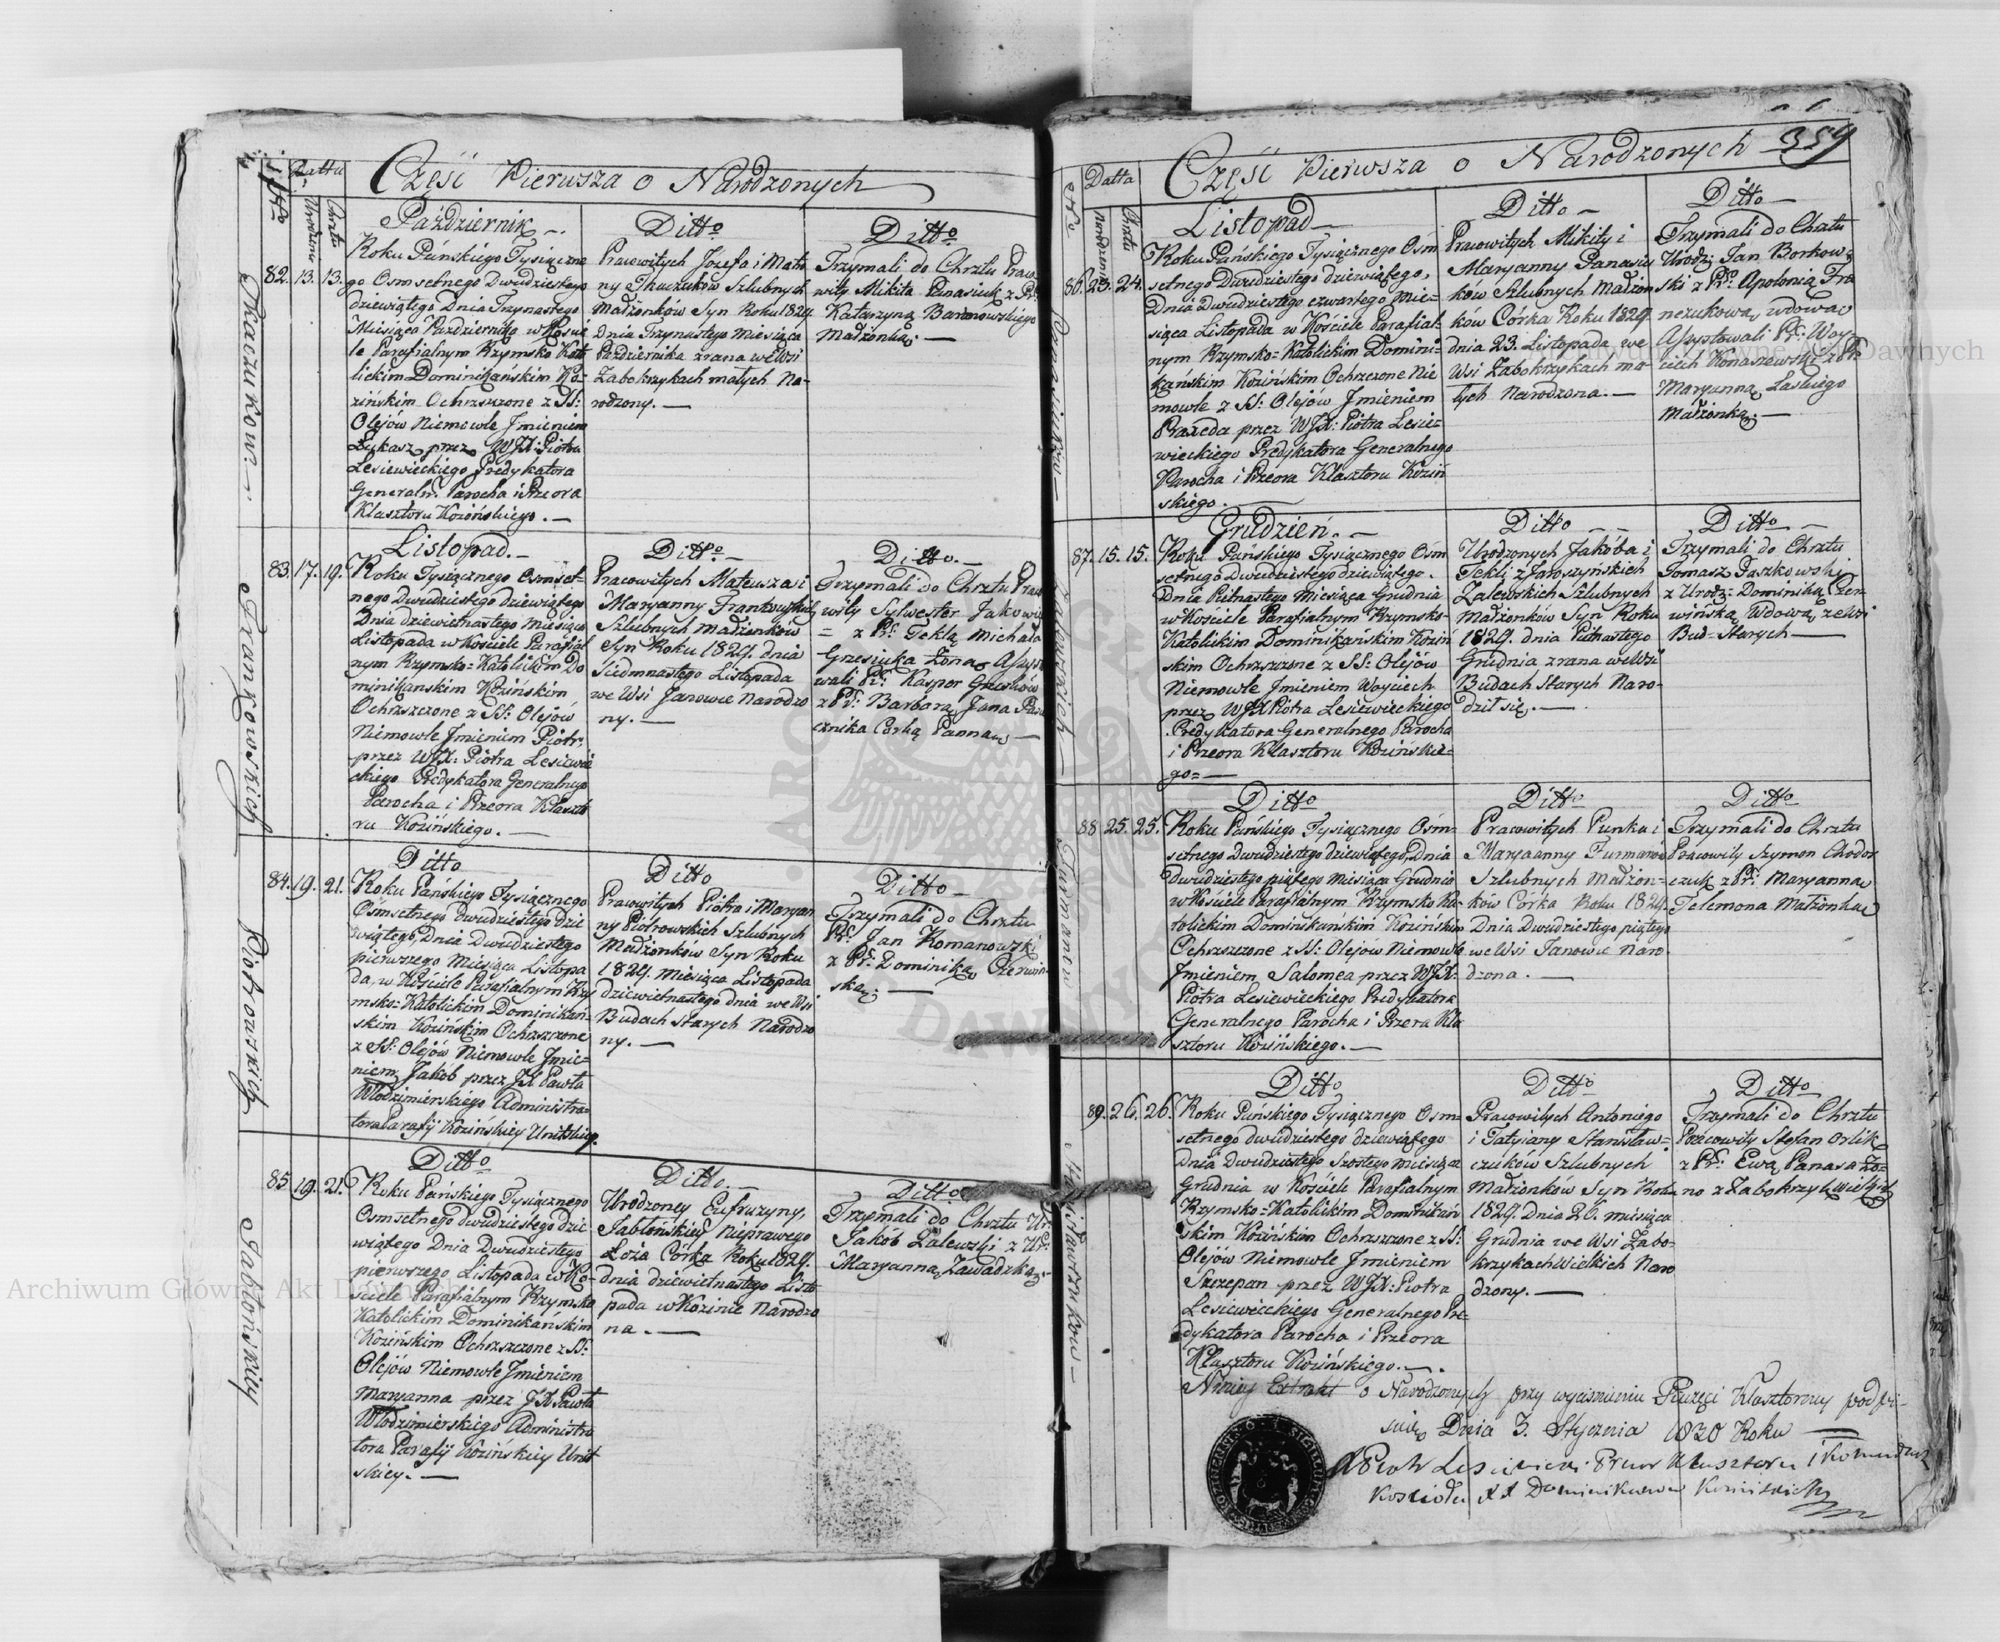 Część Pierwsza o Narodzonych
No
Datta
Urodzenia
Chrztu
Październik.
82. 13. 13.
Tkaczukow.
Roku Pańskiego Tysiączne
go Osmsetnego Dwudziestego
dziewiątego Dnia Trzynastego
Miesiąca Października w Koście
le Parafialnym Rzymsko Kato
lickim Dominikańskim Ko-
zińskim Ochrzszzone z SS:
Olejów Niemowle Jmieniem
Łukasz przez WJX: Piotra
Lesiewieckiego Predykatora
Generaln: Parocha i Przeora
Klasztoru Kozińskiego.
Ditto
Pracowitych Jozefa i Matr
ny Tkaczuków Szlubnych
Małżonków Syn Roku 1829.
Dnia Trzynastego Miesiąca
Października zrana we Wsi
Zabokrzykach małych Na-
rodzony.
Ditto
Trzymali do Chrztu Praco
wity Mikita Panasiuk z Pr:
Katarzyną Baranowskiego
Małżonką.
Listopad.
83. 17. 19.
Frankowskich
Roku Tysiącznego Osmset-
nego Dwudziestego dziewiątego
Dnia dziewietnastego miesiąca
Listopada w Kościele Parafial
nym Rzymsko=Katolickim Do
minikanskim Kozińskim
Ochrzszczone z SS: Olejów
Niemowle Jmieniem Piotr,
przez WJX: Piotra Lesiewie
ckiego Predykatora Generalnego
Parocha i Przeora Klaszto
ru Kozińskiego.
Ditto
Pracowitych Mateusza i
Maryanny Frankowskich
Szlubnych Małżonków
Syn Roku 1829. dnia
Siedmnastego Listopada
we Wsi Janowce Narodzo
ny.
Ditto.
Trzymali do Chrztu Praco
wity Sylwester Jakowi
= z Pr: Teklą Michała
Grzesiuka Żoną Assysto
wali Pr: Kasper
z Pr: Barbarą Jana
cznika Corką Panną
Ditto
84. 19. 21.
Piotrowskich
Roku Pańskiego Tysiącznego
Osmsetnego Dwudziestego dzie
wiątego, Dnia Dwudziestego
pierwszego Miesiąca Listopa
da, w Kościele Parafialnym Rzy
msko=Katolickim Dominikań-
skim Kozińskim Ochrzszczone
z SS: Olejów Niemowle Jmie-
niem Jakób przez JX Pawła
Włodzimierskiego Administra-
tora Parafij Kozińskiey Unitskiey.
Ditto
Pracowitych Piotra i Maryan
ny Piotrowskich Szlubnych
Małżonków Syn Roku
1829. Miesiąca Listopada
dziewietnastego dnia we Wsi
Budach Starych Narodzo
ny.
Ditto
Trzymali do Chrztu
Pr: Jan Romanowski
z Pr: Dominiką Czerwin-
ską.
Ditto
85 19. 21.
Jabłońskiey
Roku Pańskiego Tysiącznego
Osmsetnego dwudziestego dzie
wiątego Dnia Dwudziestego
pierwszego Listopada w Ko-
ściele Parafialnym Rzymsko
Katolickim Dominikańskim
Kozińskim Ochrzszczone z SS:
Olejów Niemowle Jmieniem
Maryanna przez JX Pawła
Włodzimierskiego Administra
tora Parafij Kozińskiey Unit
skiey.
Ditto.
Urodzoney Eufruzyny,
Jabłońskiey Nieprawego
Łoża Córka Roku 1829.
dnia dziewietnastego Listo
pada w Kozinie Narodzo
na.
Ditto
Trzymali do Chrztu Ur:
Jakób Zalewski z Ur:
Maryanną Zawadzką.
359
Część Pierwsza o Narodzonych
No
Datta
Narodzenia
Chrztu
Listopad
86. 23. 24.
Panasiuków
Roku Pańskiego Tysiącznego Osm
setnego Dwudziestego dziewiątego,
Dnia Dwudziestego czwartego mie-
siąca Listopada w Kościele Parafial-
nym Rzymsko=Katolickim Domini-
kańskim Kozińskim Ochrzczone Nie
mowle z SS: Olejów Jmieniem
Praxeda przez WJX: Piotra Lesie-
wieckiego Predykatora Generalnego
Parocha i Przeora Klasztoru Koziń
skiego.
Ditto
Pracowitych Mikity i
Maryanny Panasiu
ków Szlubnych Małżon
ków Córka Roku 1829.
dnia 23. Listopada we
Wsi Zabokrzykach ma-
łych Narodzona.
Ditto
Trzymali do Chrztu
Urodz: Jan Borkow-
ski z Pr: Apolonią Fra
nezukową wdową
Assystowali Pr: Woy-
ciech Konaszewski z Pr:
Maryanną Laskiego
Małżonką.
Grudzień.
87. 15. 15.
Zalewskich
Roku Pańskiego Tysiącznego Osm
setnego Dwudziestego dziewiątego.
Dnia Pietnastego Miesiąca Grudnia
w Kościele Parafialnym Rzymsko-
Katolickim Dominikańskim Koziń
skim Ochrzszczone z SS: Olejów
Niemowle Jmieniem Woyciech
przez WJX Piotra Lesiewieckiego
Predykatora Generalnego Parocha
i Przeora Klasztoru Kozińskie-
go=
Ditto
Urodzonych Jakóba i
Tekli z Jaroszyńskich
Zalewskich Szlubnych
Małżonków Syn Roku
1829. dnia Pietnastego
Grudnia zrana we Wsi
Budach Starych Naro-
dził się.
Ditto
Trzymali do Chrztu
Tomasz Paszkowski
z Urodz: Dominiką Czer-
wińską Wdową ze Wsi
Bud=Starych
Ditto
88 25. 25.
Furmanów
Roku Pańskiego Tysiącznego Osm-
setnego Dwudziestego dziewiątego, Dnia
Dwudziestego piątego Miesiąca Grudnia
w Kościele Parafialnym Rzymsko Ka
tolickim Dominikańskim Kozińskim
Ochrzszczone z SS: Olejów Niemowle
Jmieniem Salomea przez WJX:
Piotra Lesiewieckiego Predykatora
Generalnego Parocha i Przeora Kla
sztoru Kozińskiego.
Ditto
Pracowitych Punka i
Maryanny Furmanów
Szlubnych Małżon-
ków Córka Roku 1829.
Dnia Dwudziestego piątego
we Wsi Janowce Naro-
dzona.
Ditto
Trzymali do Chrztu
Pracowity Szymon Chodor
czuk z Pr: Maryanną
Telemona Małżonką
Ditto
89. 26. 26.
Stanisławczuków
Roku Pańskiego Tysiącznego Osm
setnego dwudziestego dziewiątego
Dnia Dwudziestego Szóstego Miesiąca
Grudnia w Kościele Parafialnym
Rzymsko=Katolickim Dominikań
skim Kozińskim Ochrzszczone z SS:
Olejów Niemowle Jmieniem
Szczepan przez WJX: Piotra
Lesiewieckiego Generalnego Pre-
dykatora Parocha i Przeora
Klasztoru Kozińskiego.
Ditto
Pracowitych Antoniego
i Tatyiany Stanisław-
czuków Szlubnych
Małżonków Syn Roku
1829. Dnia 26. miesiąca
Grudnia we Wsi Zabo-
krzykach Wielkich Naro
dzony.
Ditto
Trzymali do Chrztu
Pracowity Stefan Orlik
z Pr: Ewą Panasa Żo-
no z Zabokrzyk Wielkich
Ninieyszy Extrakt o Narodzonych przy wyciśnieniu Pieczęci Klasztorney podpi-
suię Dnia 3. Stycznia 1830 Roku
X Piotr Lesiewiecki Przeor Klasztoru i
Kościoła XX Dominikanow Kozińskich
Archiwum Główne Akt Dawnych
Archiwum Główne Akt Dawnych